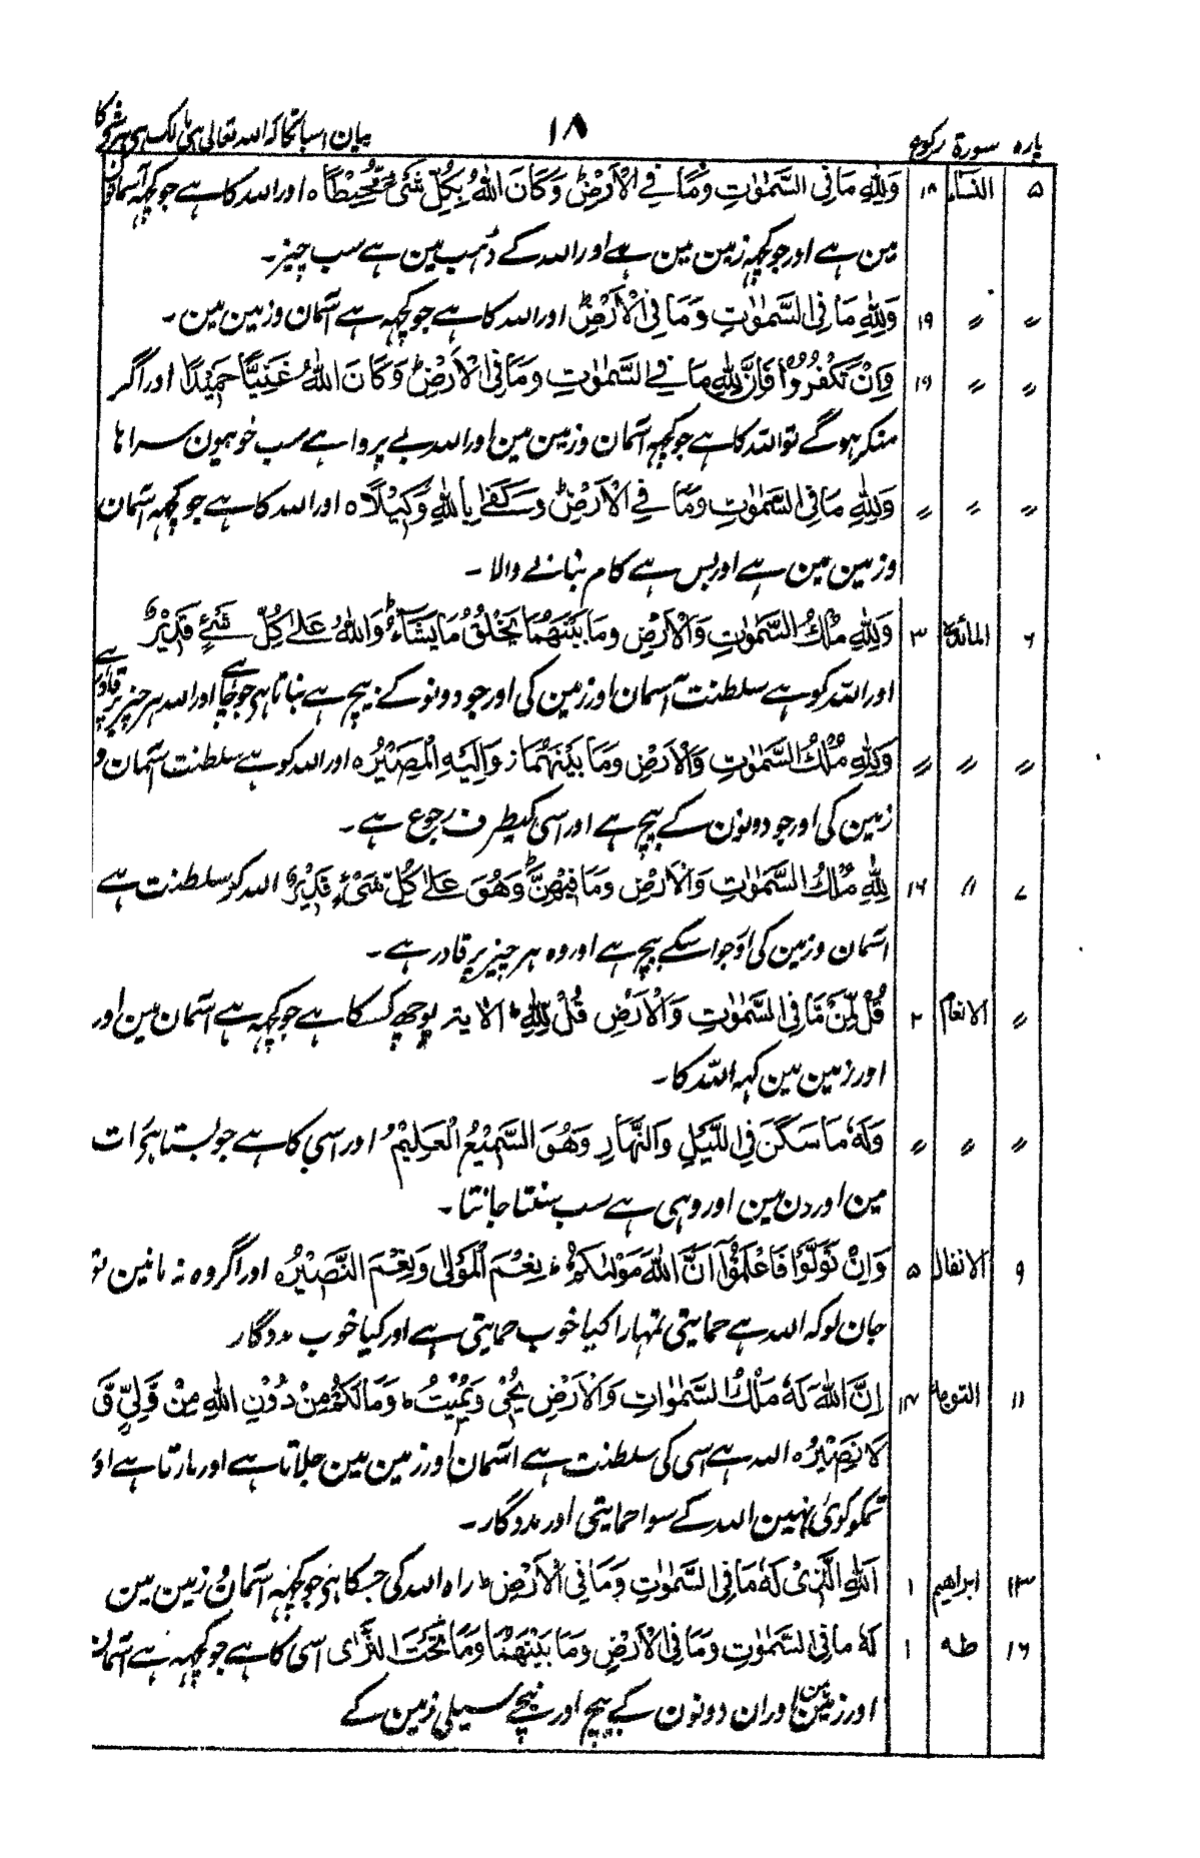 پاره سورة ركوع ۱۸ بیان اسباتکا کہ اللہ تعالی ہی مالک ہی ہر شی کا
۵ النساء ۱۸ وَلِلّٰهِ مَا فِی السَّمٰوٰتِ وَمَا فِی الْاَرْضِؕ وَكَانَ اللّٰهُ بِكُلِّ شَیْءٍ مُّحِیْطًا ہ اور اللہ کا ہے جو کچہہ آسمانون
مین ہے اور جو کچہہ زمین مین ہے اور اللہ کے ڈہب مین ہے سب چیز۔
〃 〃 ۱۹ وَلِلّٰهِ مَا فِی السَّمٰوٰتِ وَمَا فِی الْاَرْضِؕ اور اللہ کا ہے جو کچہہ ہے آسمان وزمین مین ۔
〃 〃 ۱۹ وَاِنْ تَكْفُرُوْا فَاِنَّ لِلّٰهِ مَا فِی السَّمٰوٰتِ وَمَا فِی الْاَرْضِؕ وَكَانَ اللّٰهُ غَنِیًّا حَمِیْدًا اور اگر
منکر ہوگے تو اللہ کا ہے جو کچہہ آسمان وزمین مین اور اللہ بے پروا ہے سب خوبیون سراہا
〃 〃 〃 وَلِلّٰهِ مَا فِی السَّمٰوٰتِ وَمَا فِی الْاَرْضِؕ وَكَفٰى بِاللّٰهِ وَكِیْلًا ہ اور اللہ کا ہے جو کچہہ آسمان
وزمین مین ہے اور بس ہے کام بنانے والا ۔
۶ المائدة ۳ وَلِلّٰهِ مُلْكُ السَّمٰوٰتِ وَالْاَرْضِ وَمَا بَیْنَهُمَا یَخْلُقُ مَا یَشَآءُؕ وَاللّٰهُ عَلٰى كُلِّ شَیْءٍ قَدِیْرٌ
اور اللہ کو ہے سلطنت آسمان اور زمین کی اور جو دونو کے بیچ ہے بناتا ہی جو چاہے اور اللہ ہر چیز پر قادر ہے
〃 〃 〃 وَلِلّٰهِ مُلْكُ السَّمٰوٰتِ وَالْاَرْضِ وَمَا بَیْنَهُمَا ز وَاِلَیْهِ الْمَصِیْرُ ہ اور اللہ کو ہے سلطنت آسمان و
زمین کی اور جو دونون کے بیچ ہے اور اسی کیطرف رجوع ہے ۔
۷ 〃 ۱۶ لِلّٰهِ مُلْكُ السَّمٰوٰتِ وَالْاَرْضِ وَمَا فِیْهِنَّؕ وَهُوَ عَلٰى كُلِّ شَیْءٍ قَدِیْرٌ اللہ کو سلطنت ہے
آسمان وزمین کی اوجو اسکے بیچ ہے اور وہ ہر چیز پر قادر ہے ۔
〃 الانعام ۲ قُلْ لِّمَنْ مَّا فِی السَّمٰوٰتِ وَالْاَرْضِ قُلْ لِّلّٰهِ ط الایتہ پوچھ کسکا ہے جو کچہہ ہے آسمان مین اور
اور زمین مین کہہ اللہ کا ۔
〃 〃 〃 وَلَهٗ مَا سَكَنَ فِی اللَّیْلِ وَالنَّهَارِ وَهُوَ السَّمِیْعُ الْعَلِیْمُ اور اسی کا ہے جو بستا ہے رات
مین اور دن مین اور وہی ہے سب سنتا جانتا ۔
۹ الانفال ۵ وَاِنْ تَوَلَّوْا فَاعْلَمُوْٓا اَنَّ اللّٰهَ مَوْلٰىكُمْ ط نِعْمَ الْمَوْلٰى وَنِعْمَ النَّصِیْرُ ہ اور اگر وہ نہ مانین تو
جان لو کہ اللہ ہے حمایتی تمہارا کیا خوب حمایتی ہے اور کیا خوب مددگار
۱۱ التوبہ ۱۴ اِنَّ اللّٰهَ لَهٗ مُلْكُ السَّمٰوَاتِ وَالْاَرْضِ یُحْیٖ وَیُمِیْتُ ط وَمَا لَكُمْ مِنْ دُوْنِ اللّٰهِ مِنْ وَّلِیٍّ وَّ
لَا نَصِیْرٍ ہ اللہ ہے اسی کی سلطنت ہے آسمان اور زمین مین جلاتا ہے اور مارتا ہے او
تمکو کوئی نہین اللہ کے سوا حمایتی اور مددگار ۔
۱۳ ابراھیم ۱ اَللّٰهِ الَّذِیْ لَهٗ مَا فِی السَّمٰوٰتِ وَمَا فِی الْاَرْضِ ط راہ اللہ کی جسکا ہی جو کچہہ آسمان و زمین مین
۱۶ طه ۱ لَهٗ مَا فِی السَّمٰوٰتِ وَمَا فِی الْاَرْضِ وَمَا بَیْنَهُمَا وَمَا تَحْتَ الثَّرٰى اسی کا ہے جو کچہہ ہے آسمان
اور زمین مین اور ان دونون کے بیچ اور نیچے سیلی زمین کے